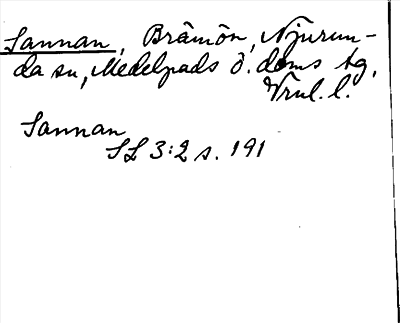 Sannan, Brämön, Njurun-
da sn, Medelpads ö. doms tg,
Vnl. l.
Sannan
SL 3:2 s. 191